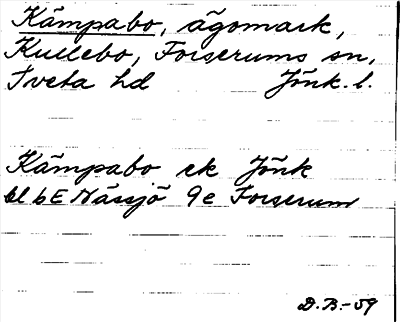 Kämpabo, ägomark,
Kullebo, Forserums sn,
Tveta hd Jönk. l.
Kämpabo ek Jönk
bl 6E Nässjö 9e Forserum
D.B.-59